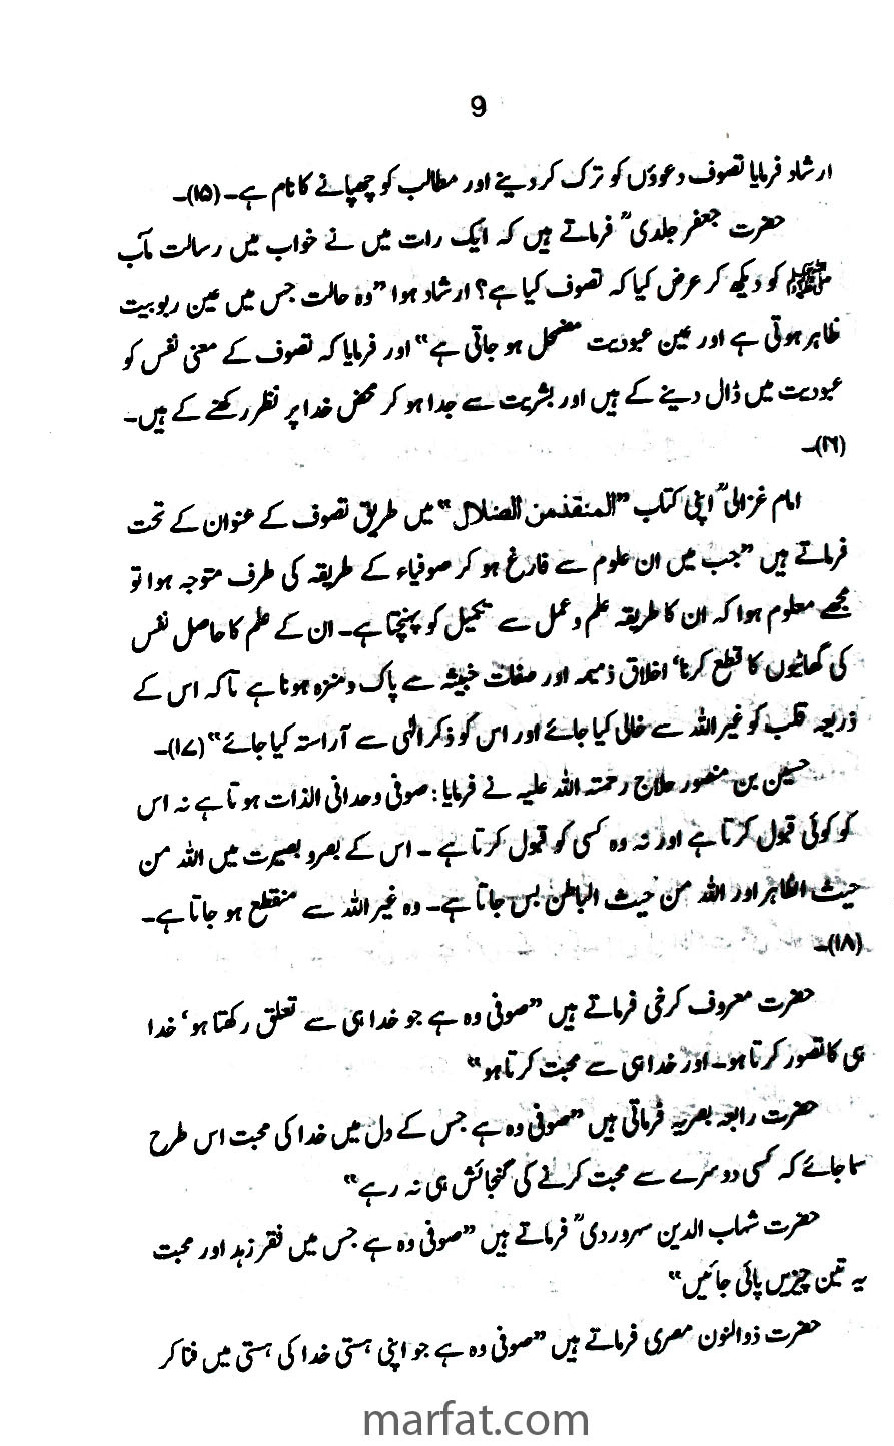 9
ارشاد فرمایا تصوف دعوؤں کو ترک کر دینے اور مطالب کو چھپانے کا نام ہے۔ (۱۵)۔
حضرت جعفر جلدیؒ فرماتے ہیں کہ ایک رات میں نے خواب میں رسالت مآب
ﷺ کو دیکھ کر عرض کیا کہ تصوف کیا ہے؟ ارشاد ہوا ”وہ حالت جس میں عین ربوبیت
ظاہر ہوتی ہے اور عین عبودیت مضمحل ہو جاتی ہے“ اور فرمایا کہ تصوف کے معنی نفس کو
عبودیت میں ڈال دینے کے ہیں اور بشریت سے جدا ہو کر محض خدا پر نظر رکھنے کے ہیں۔
(۱۶)۔
امام غزالیؒ اپنی کتاب ”المنقذ من الضلال“ میں طریق تصوف کے عنوان کے تحت
فرماتے ہیں ”جب میں ان علوم سے فارغ ہو کر صوفیاء کے طریقہ کی طرف متوجہ ہوا تو
مجھے معلوم ہوا کہ ان کا طریقہ علم و عمل سے تکمیل کو پہنچتا ہے۔ ان کے علم کا حاصل نفس
کی گھاٹیوں کا قطع کرنا‘ اخلاق ذمیمہ اور صفات خبیثہ سے پاک و منزہ ہونا ہے تاکہ اس کے
ذریعہ قلب کو غیر اللہ سے خالی کیا جائے اور اس کو ذکر الٰہی سے آراستہ کیا جائے“ (۱۷)۔
حسین بن منصور حلاج رحمتہ اللہ علیہ نے فرمایا : صوفی وحدانی الذات ہوتا ہے نہ اس
کو کوئی قبول کرتا ہے اور نہ وہ کسی کو قبول کرتا ہے ۔ اس کے بصر و بصیرت میں اللہ من
حیث الظاہر اور اللہ من حیث الباطن بس جاتا ہے۔ وہ غیر اللہ سے منقطع ہو جاتا ہے۔
(۱۸)۔
حضرت معروف کرخی فرماتے ہیں ”صوفی وہ ہے جو خدا ہی سے تعلق رکھتا ہو‘ خدا
ہی کا تصور کرتا ہو۔ اور خدا ہی سے محبت کرتا ہو“
حضرت رابعہ بصریہ فرماتی ہیں ”صوفی وہ ہے جس کے دل میں خدا کی محبت اس طرح
سما جائے کہ کسی دوسرے سے محبت کرنے کی گنجائش ہی نہ رہے“
حضرت شہاب الدین سہروردیؒ فرماتے ہیں ”صوفی وہ ہے جس میں فقر زہد اور محبت
یہ تین چیزیں پائی جائیں“
حضرت ذوالنون مصری فرماتے ہیں ”صوفی وہ ہے جو اپنی ہستی خدا کی ہستی میں فنا کر
marfat.com